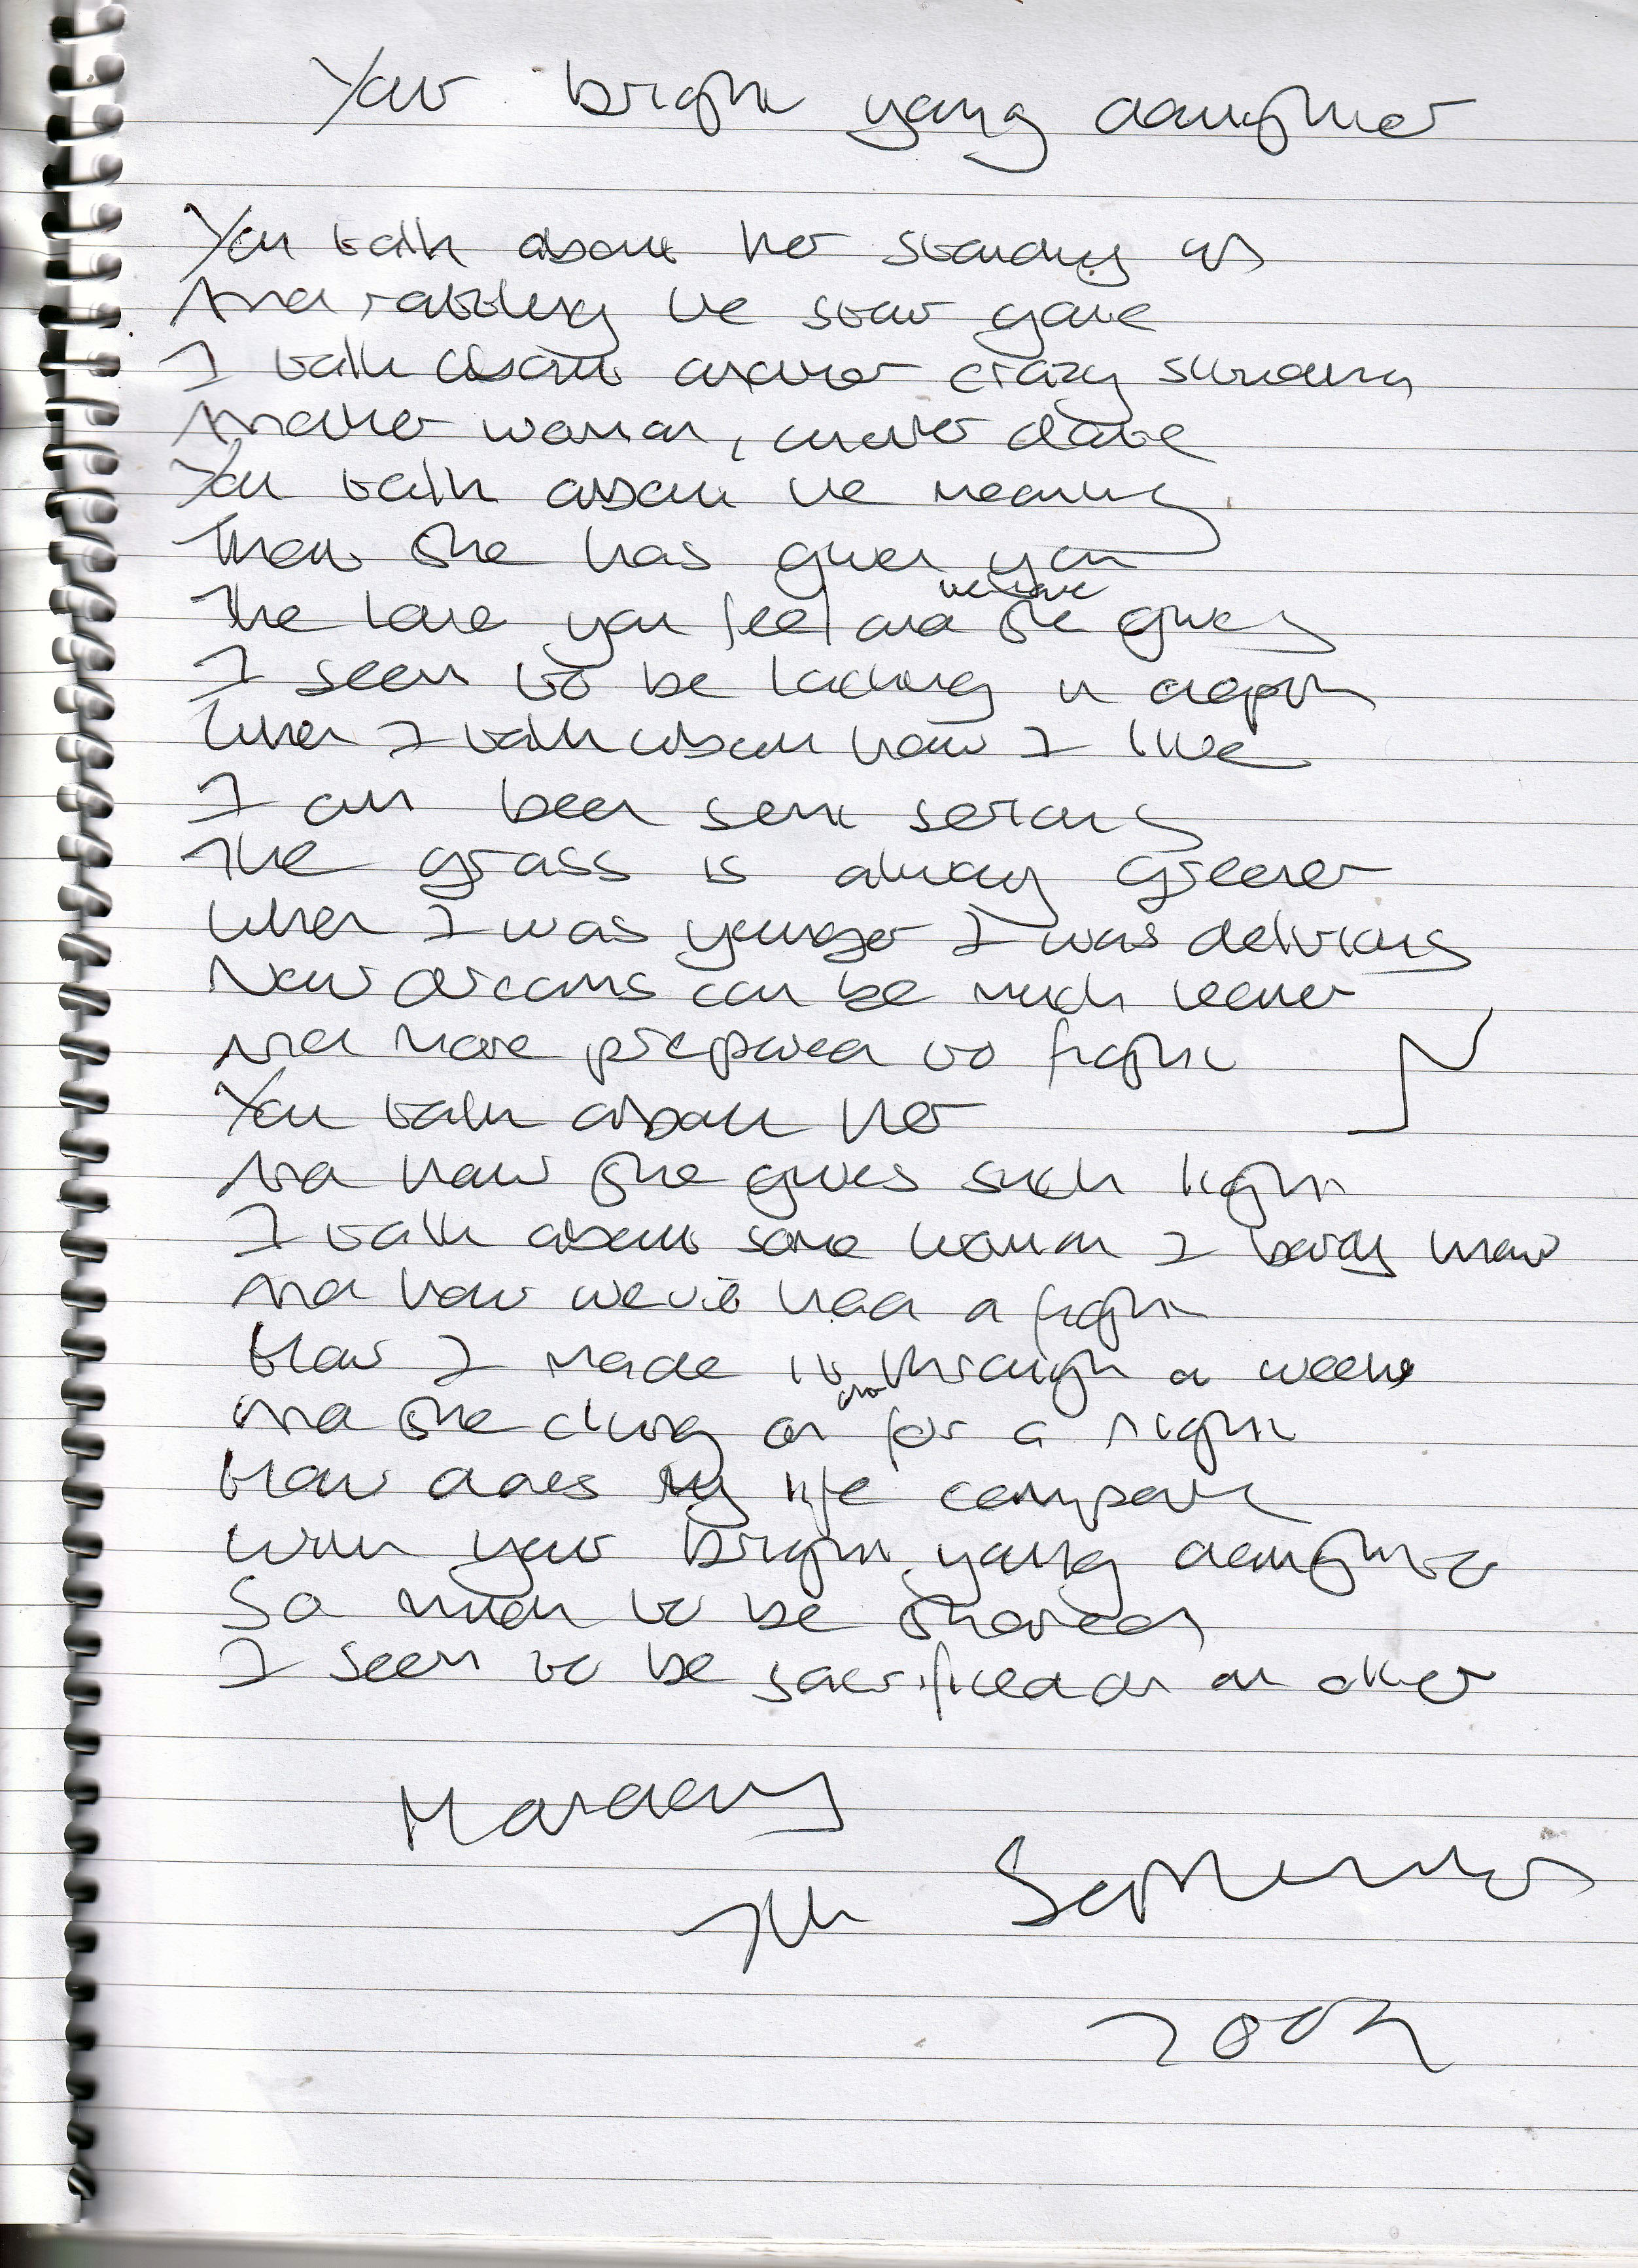 Your bright young daughter
You talk about her standing up
And rattling the stair gate
I talk about another crazy Sunday
Another woman, another date
You talk about the meaning
That she has given you
The love you feel and the love she gives
I seem to be lacking in depth
When I talk about how I live
I am been semi serious
The grass is always greener
When I was younger I was delirious
Now dreams can be much leaner
And more prepared to fight
You talk about her
And how she gives such light
I talk about some woman I barely know
And how we've had a fight
How I made it through a week
And she clung on for a night
How does my life compare
With your bright young daughter
So much to be shared
I seem to be sacrificed on an alter
Monday
7th September
2002